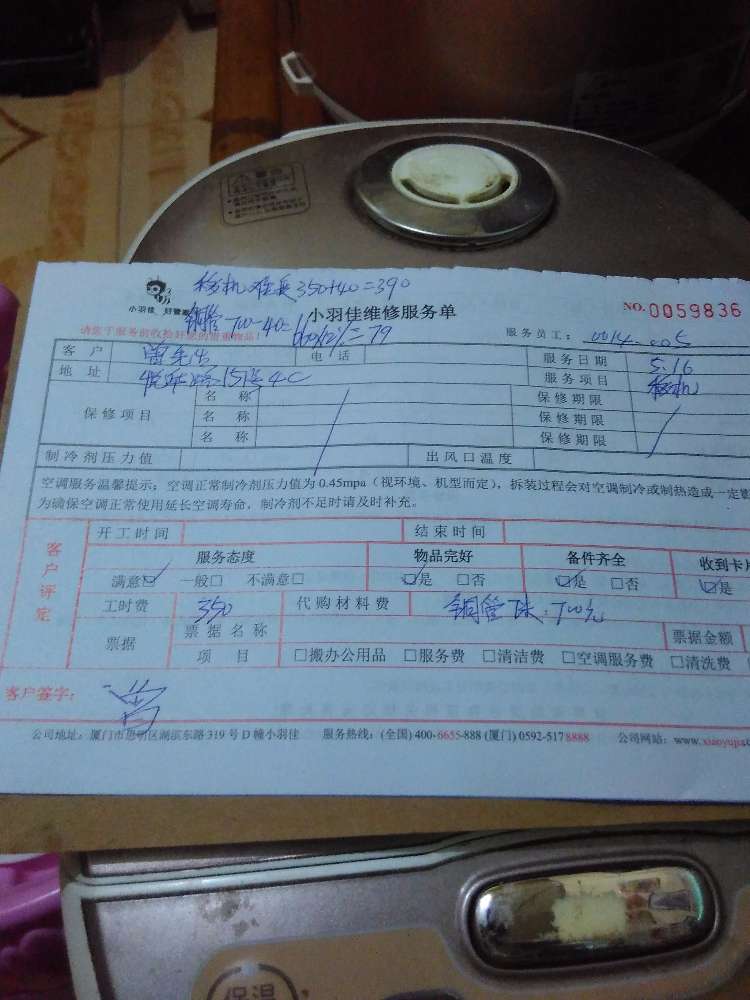 移机难度350+40=390
小羽佳 好管家
小羽佳维修服务单
NO.0059836
铜管700-40=660×12%=79
请您于服务前收拾好您的贵重物品！
服务员工： 0014-005
客 户 曾先生 电 话 服务日期 5.16
地 址 悦华路151号4C 服务项目 移机
保修项目 名 称 保修期限
名 称 保修期限
名 称 保修期限
制冷剂压力值 出风口温度
空调服务温馨提示：空调正常制冷剂压力值为0.45mpa（视环境、机型而定），拆装过程会对空调制冷或制热造成一定
为确保空调正常使用延长空调寿命，制冷剂不足时请及时补充。
客户评定
开工时间 结束时间
服务态度 物品完好 备件齐全 收到卡片
满意☑ 一般□ 不满意□ ☑是 □否 ☑是 □否 ☑是
工时费 350 代购材料费 铜管 700元
票据 票据名称 票据金额
项 目 □搬办公用品 □服务费 □清洁费 □空调服务费 □清洗费
客户签字： 曾
公司地址：厦门市思明区湖滨东路319号D幢小羽佳 服务热线：(全国) 400-6655-888 (厦门) 0592-5178888 公司网站：www.xiaoyujia
保温